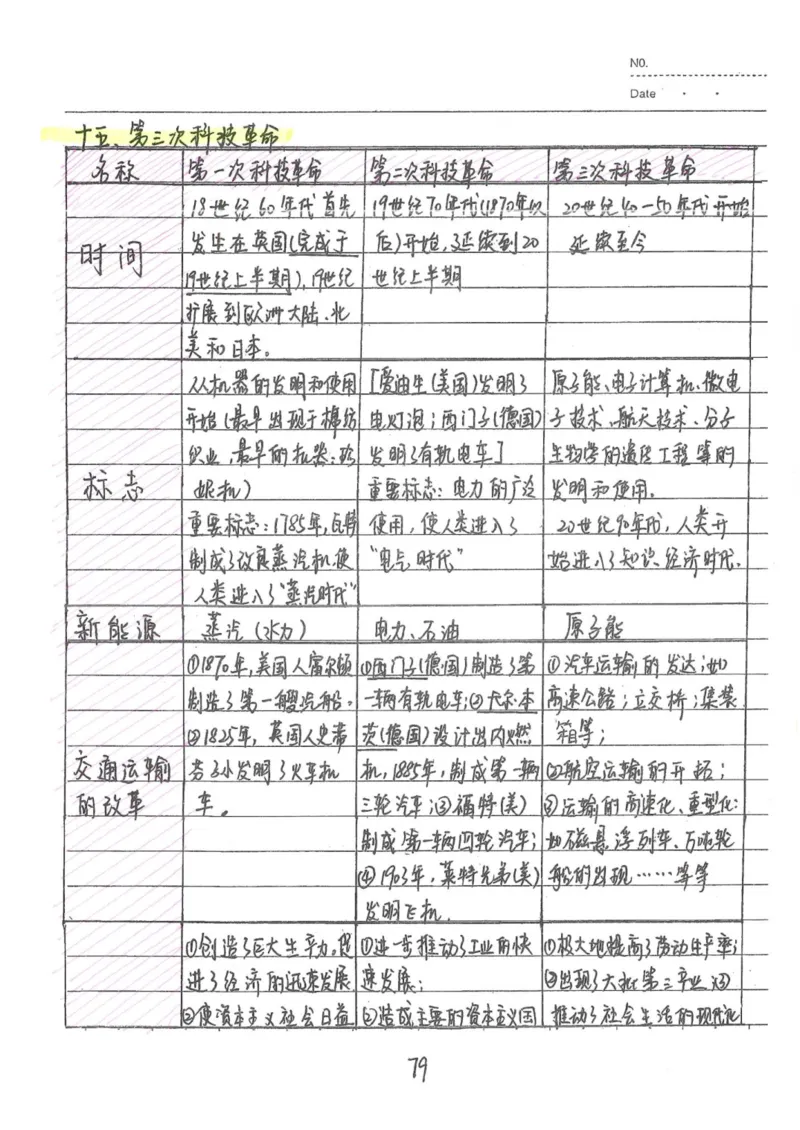 NO.
Date
十五、第三次科技革命
名称 第一次科技革命 第二次科技革命 第三次科技革命
时间
18世纪60年代首先
发生在英国(完成于
19世纪上半期),19世纪
扩展到欧洲大陆、北
美和日本。
19世纪70年代(1870年以
后)开始,延续到20
世纪上半期
20世纪40-50年代开始
延续至今
标志
从机器的发明和使用
开始(最早出现于棉纺
织业,最早的机器:珍
妮机)
重要标志:1785年,瓦特
制成了改良蒸汽机使
人类进入了“蒸汽时代”
[爱迪生(美国)发明了
电灯泡;西门子(德国)
发明了有轨电车]
重要标志:电力的广泛
使用,使人类进入了
“电气时代”
原子能、电子计算机、微电
子技术、航天技术、分子
生物学的遗传工程等的
发明和使用。
20世纪90年代,人类开
始进入了知识经济时代.
新能源 蒸汽(水力) 电力、石油 原子能
交通运输
的改革
①1870年,美国人富尔顿
制造了第一艘汽船。
②1825年,英国人史蒂
芬孙发明了火车机
车。
①西门子(德国)制造了第
一辆有轨电车;②卡尔·本
茨(德国)设计出内燃
机,1885年,制成第一辆
三轮汽车;③福特(美)
制成第一辆四轮汽车;
④1903年,莱特兄弟(美)
发明飞机.
①汽车运输的发达;如
高速公路;立交桥;集装
箱等;
②航空运输的开拓;
③运输的高速化、重型化:
如磁悬浮列车、万吨轮
船的出现……等等
①创造了巨大生产力。促
进了经济的迅速发展.
②使资本主义社会日益
①进一步推动了工业的快
速发展;
②造成主要的资本主义国
①极大地提高了劳动生产率;
②出现了大批第三产业;③
推动了社会生活的现代化
79